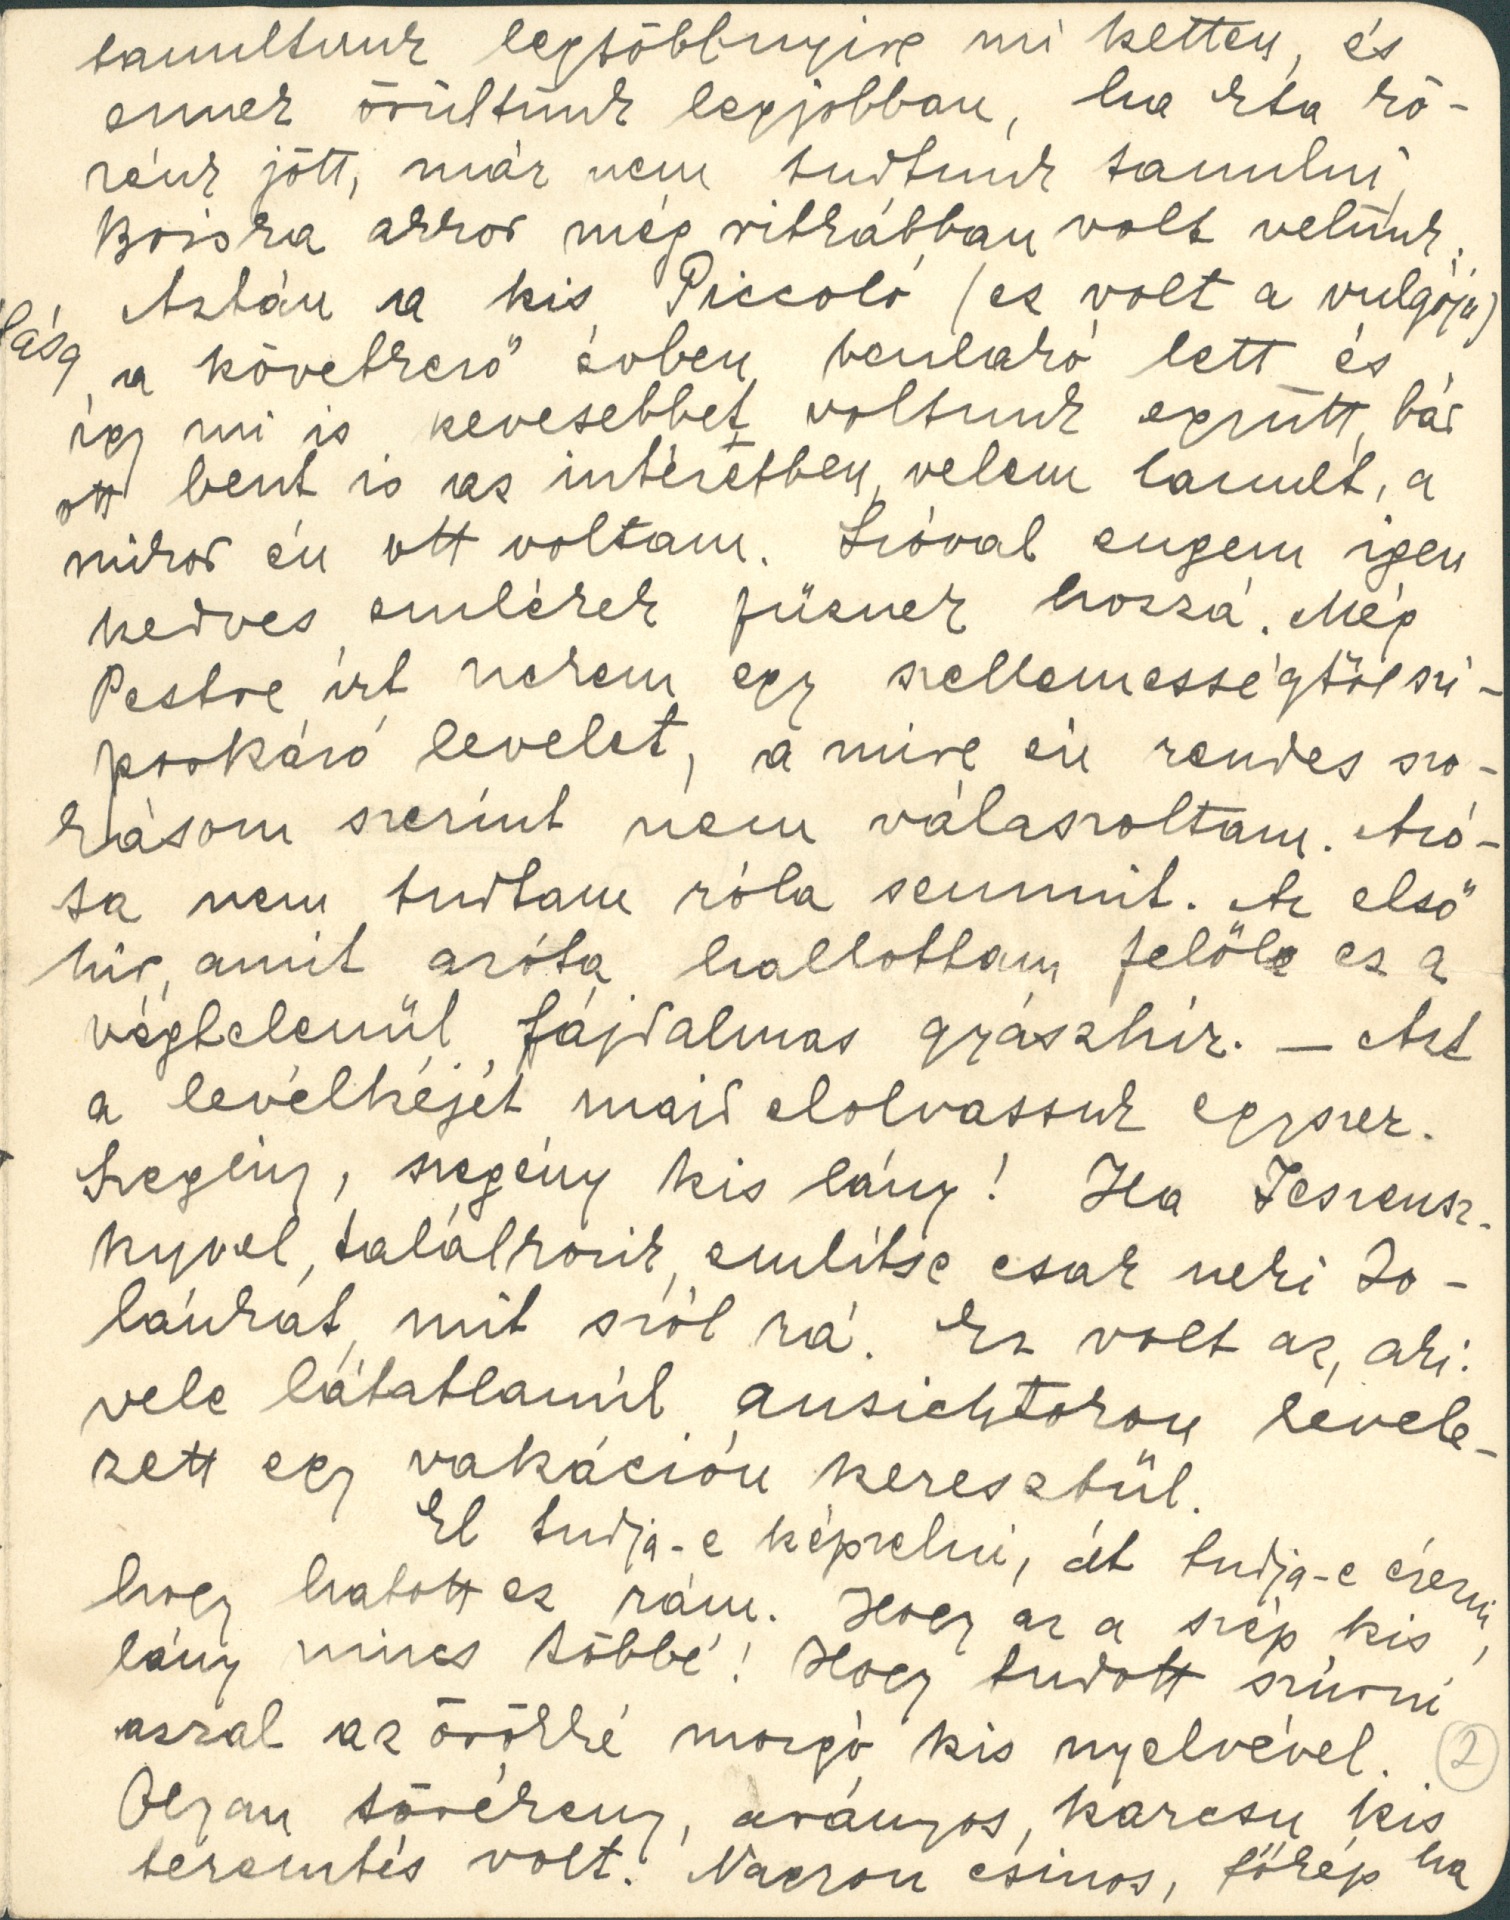 tanultunk legtöbbnyire mi ketten, és
ennek örültünk legjobban, ha Eta kö-
zénk jött, már nem tudtunk tanulni,
Böiske akkor még ritkábban volt velünk.
Aztán a kis Piccoló (ez volt a vulgója)
a következő évben bentlakó lett és
így mi is kevesebbet voltunk együtt, bár
ott bent is az intézetben velem tanult, a
mikor én ott voltam. Szóval engem igen
kedves emlékek fűznek hozzá. Még
Pestre írt nekem egy szellemességtől szi-
porkázó levelet, a mire én rendes szo-
kásom szerint nem válaszoltam. Azó-
ta nem tudtam róla semmit. Az első
hír, amit azóta hallottam felőle ez a
végtelenül fájdalmas gyászhír. — Azt
a levélkéjét majd elolvassuk egyszer.
Szegény, szegény kis lány! Ha Jeszensz-
kyvel találkozik, említse csak neki Jo-
lánkát, mit szól rá. Ez volt az, aki
vele látatlanúl ansichtokon levele-
zett egy vakáción keresztül.
El tudja-e képzelni, át tudja-e érezni,
hogy hatott ez rám. Hogy az a szép kis
lány nincs többé! Hogy tudott szúrni
azzal az örökké mozgó kis nyelvével. 2
Olyan törékeny, arányos, karcsu kis
teremtés volt. Nagyon csinos, főkép ha